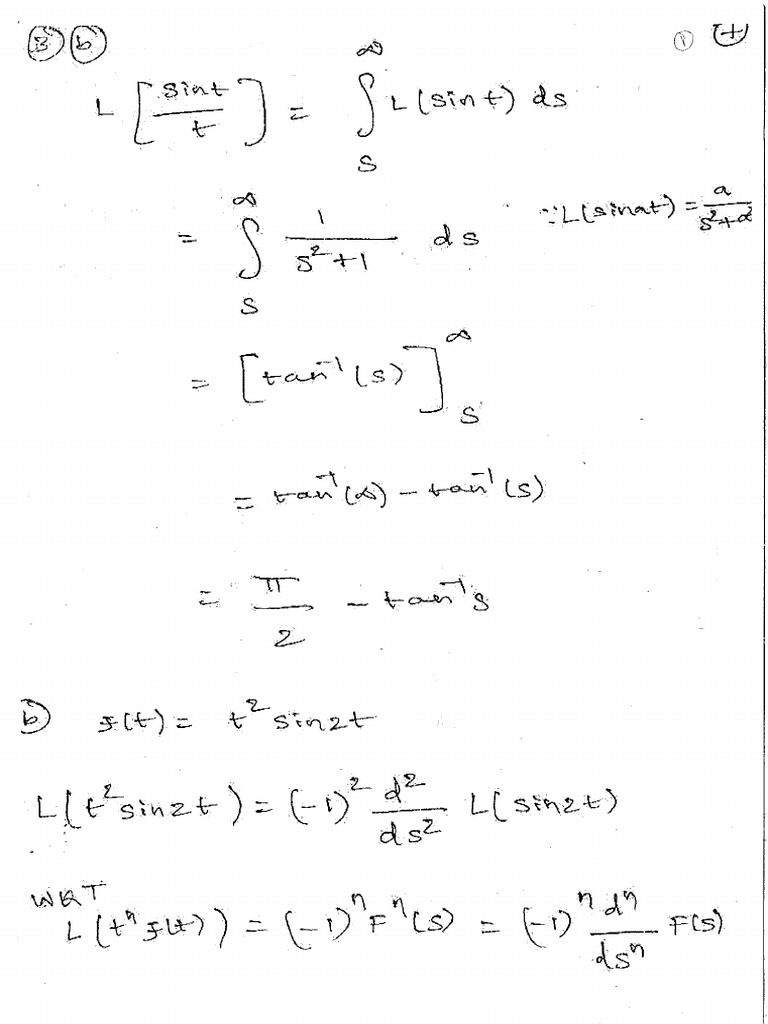 ③ ⓑ ① 4
L [ sint / t ] = ∫_s^∞ L(sint) ds
= ∫_s^∞ 1/(s²+1) ds ∵L(sinat) = a/(s²+a²)
= [tan⁻¹(s)]_s^∞
= tan⁻¹(∞) - tan⁻¹(s)
= π/2 - tan⁻¹s
ⓑ f(t) = t² sin2t
L(t² sin2t) = (-1)² d²/ds² L(sin2t)
WKT
L(tⁿ f(t)) = (-1)ⁿ Fⁿ(s) = (-1)ⁿ dⁿ/dsⁿ F(s)